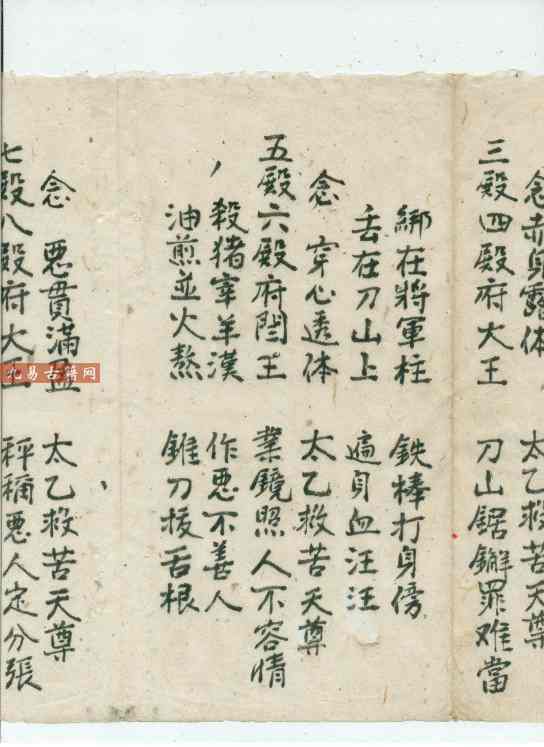 念赤身露体 太乙救苦天尊
三殿四殿府大王 刀山鋸解罪难當
綁在將軍柱 鉄棒打身傍
丢在刀山上 遍身血汪汪
念 穿心透体 太乙救苦天尊
五殿六殿府閻王 業鏡照人不容情
殺猪宰羊漢 作惡不善人
油煎並火熬 錐刀拔舌根
念 惡貫滿盈 太乙救苦天尊
七殿八殿府大王 秤稱惡人定分張
九易古籍网